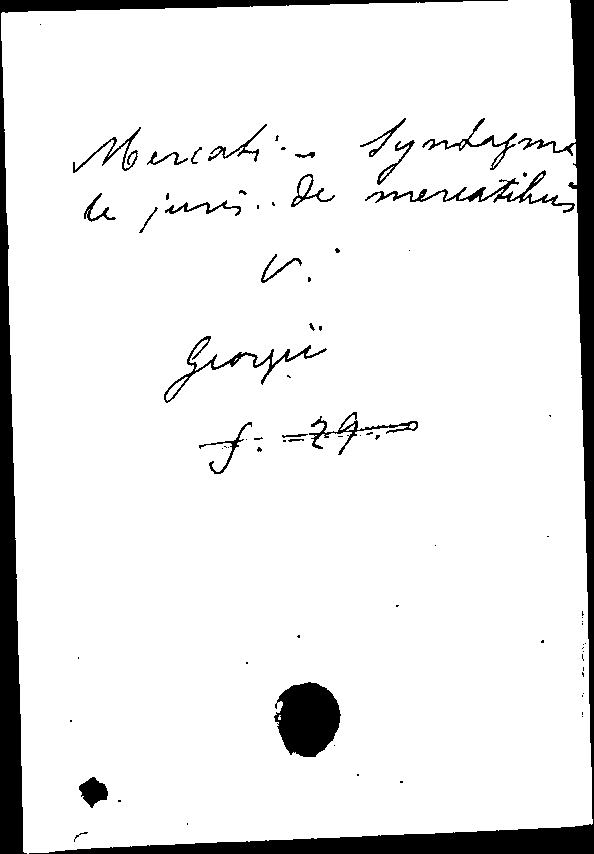 Mercati.- Syndagma
de juris.. de mercatibus
V.
Georgii
f. 29.